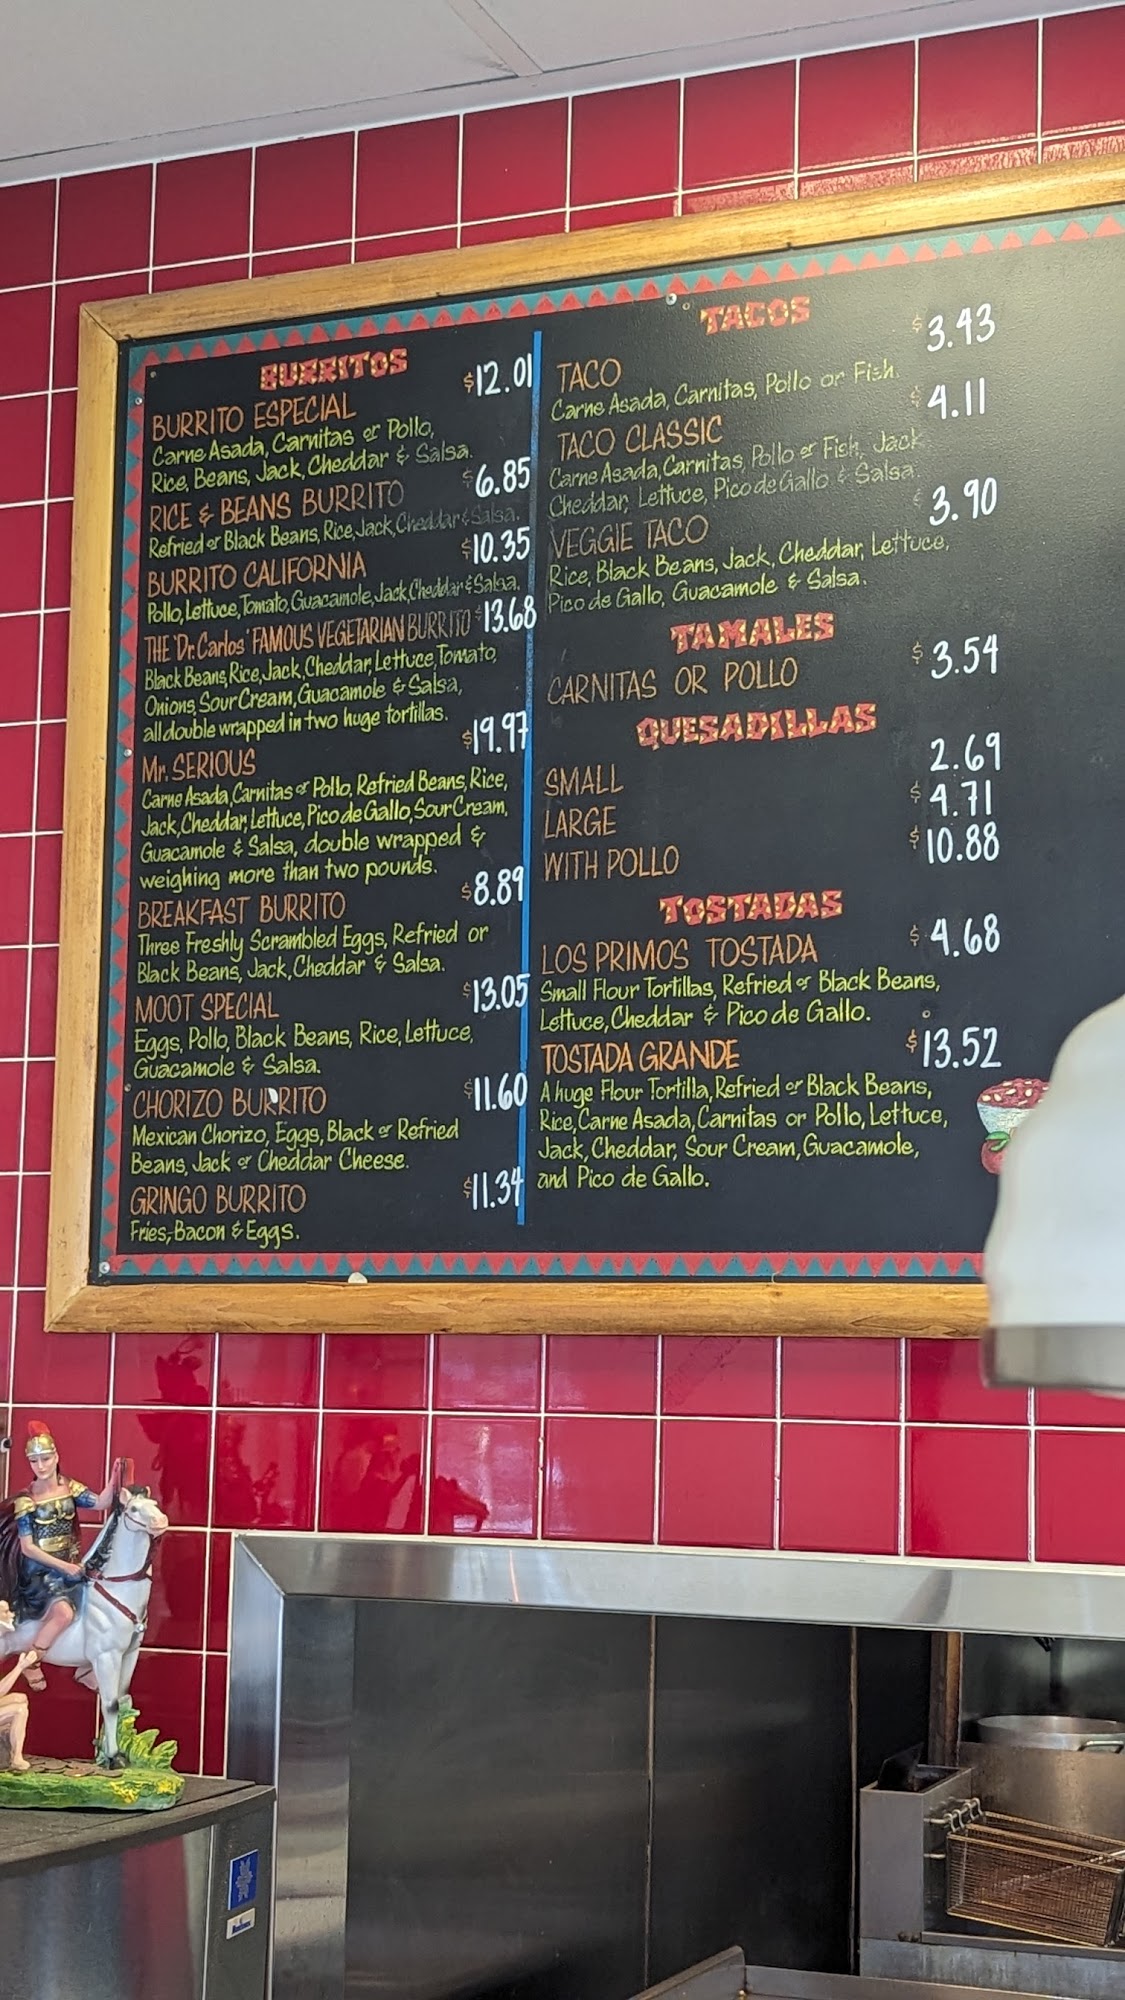 BURRITOS
BURRITO ESPECIAL $12.01
Carne Asada, Carnitas or Pollo,
Rice, Beans, Jack, Cheddar & Salsa.
RICE & BEANS BURRITO $6.85
Refried or Black Beans, Rice, Jack, Cheddar & Salsa.
BURRITO CALIFORNIA $10.35
Pollo, Lettuce, Tomato, Guacamole, Jack, Cheddar & Salsa.
THE 'Dr. Carlos' FAMOUS VEGETARIAN BURRITO $13.68
Black Beans, Rice, Jack, Cheddar, Lettuce, Tomato,
Onions, Sour Cream, Guacamole & Salsa,
all double wrapped in two huge tortillas.
Mr. SERIOUS $19.97
Carne Asada, Carnitas or Pollo, Refried Beans, Rice,
Jack, Cheddar, Lettuce, Pico de Gallo, Sour Cream,
Guacamole & Salsa, double wrapped &
weighing more than two pounds.
BREAKFAST BURRITO $8.89
Three Freshly Scrambled Eggs, Refried or
Black Beans, Jack, Cheddar & Salsa.
MOOT SPECIAL $13.05
Eggs, Pollo, Black Beans, Rice, Lettuce,
Guacamole & Salsa.
CHORIZO BURRITO $11.60
Mexican Chorizo, Eggs, Black or Refried
Beans, Jack or Cheddar Cheese.
GRINGO BURRITO $11.34
Fries, Bacon & Eggs.
TACOS
TACO $3.43
Carne Asada, Carnitas, Pollo or Fish.
TACO CLASSIC $4.11
Carne Asada, Carnitas, Pollo or Fish, Jack
Cheddar, Lettuce, Pico de Gallo & Salsa.
VEGGIE TACO $3.90
Rice, Black Beans, Jack, Cheddar, Lettuce,
Pico de Gallo, Guacamole & Salsa.
TAMALES
CARNITAS OR POLLO $3.54
QUESADILLAS
SMALL 2.69
LARGE $4.71
WITH POLLO $10.88
TOSTADAS
LOS PRIMOS TOSTADA $4.68
Small Flour Tortillas, Refried or Black Beans,
Lettuce, Cheddar & Pico de Gallo.
TOSTADA GRANDE $13.52
A huge Flour Tortilla, Refried or Black Beans,
Rice, Carne Asada, Carnitas or Pollo, Lettuce,
Jack, Cheddar, Sour Cream, Guacamole,
and Pico de Gallo.